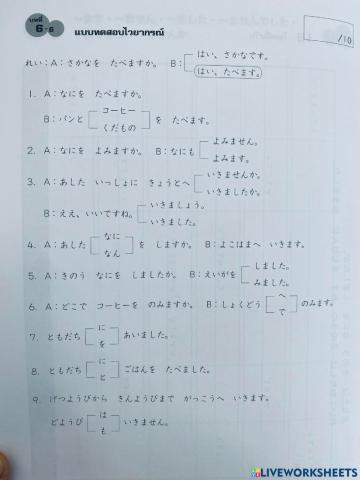 บทที่ 6 แบบทดสอบไวยากรณ์
/10
れい：A：さかなを たべますか。 B： はい、さかなです。
はい、たべます。
1. A：なにを たべますか。
コーヒー
B：パンと を たべます。
くだもの
2. A：なにを よみますか。 B：なにも よみません。
よみます。
3. A：あした いっしょに きょうとへ いきませんか。
いきましたか。
B：ええ、いいですね。 いきましょう。
いきました。
4. A：あした なに を しますか。 B：よこはまへ いきます。
なん
5. A：きのう なにを しましたか。 B：えいがを しました。
みました。
6. A：どこで コーヒーを のみますか。 B：しょくどう へ のみます。
で
7. ともだち に あいました。
を
8. ともだち に ごはんを たべました。
と
9. げつようびから きんようびまで がっこうへ いきます。
どようび は いきません。
も
LIVEWORKSHEETS